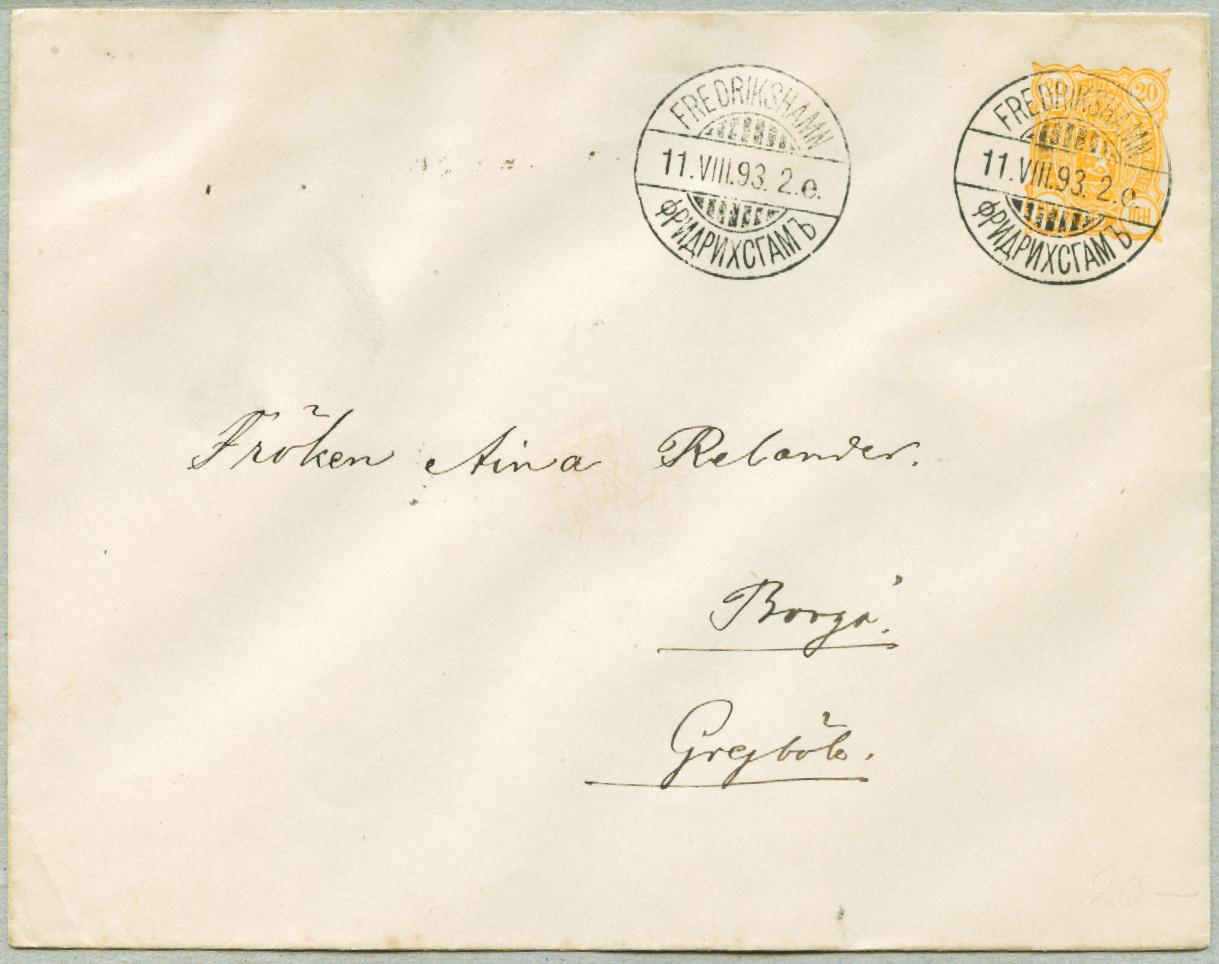 FREDRIKSHAMN
11.VIII.93. 2.e.
ФРИДРИХСГАМЪ
20 20
FREDRIKSHAMN
11.VIII.93. 2.e.
ФРИДРИХСГАМЪ
Fröken Aina Relander.
Borgå.
Grejböle.
20 —